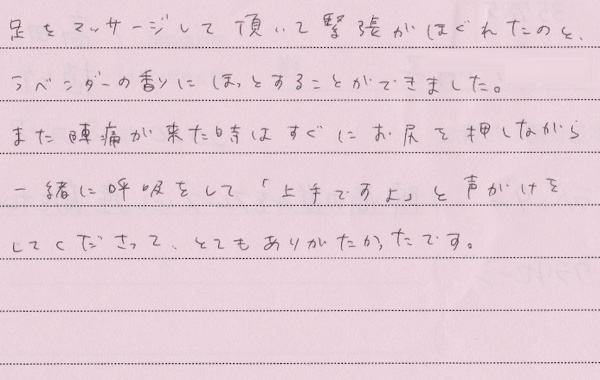 足をマッサージして頂いて緊張がほぐれたのと、
ラベンダーの香りにほっとすることができました。
また陣痛が来た時はすぐにお尻を押しながら
一緒に呼吸をして「上手ですよ」と声がけを
してくださって、とてもありがたかったです。